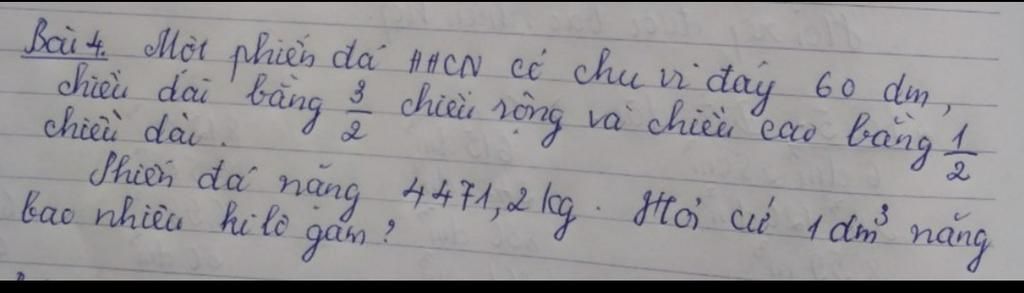 Bài 4. Một phiến đá HHCN có chu vi đáy 60 dm,
chiều dài bằng 3/2 chiều rộng và chiều cao bằng 1/2
chiều dài.
Phiến đá nặng 4471,2 kg. Hỏi cứ 1 dm³ nặng
bao nhiêu ki lô gam?